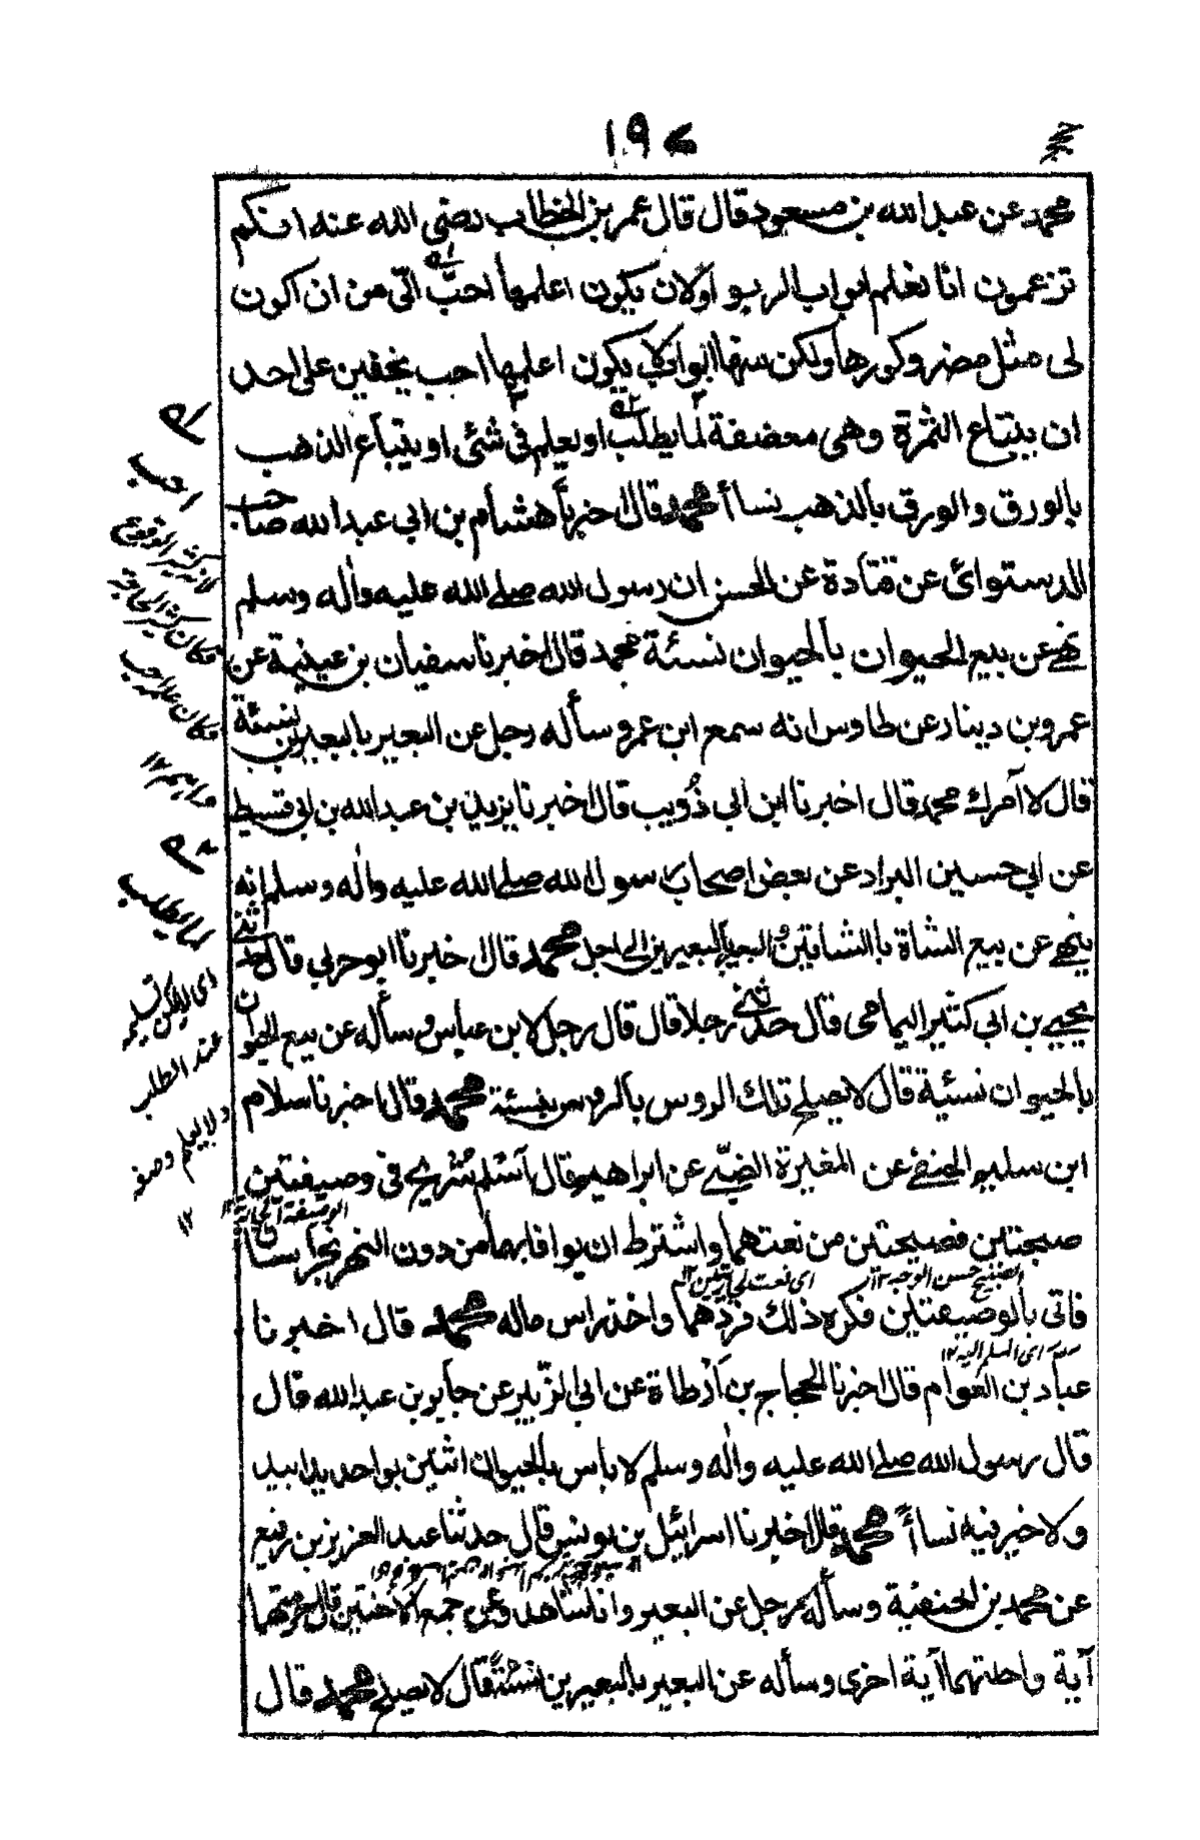 ١٩٧
محمد عن عبد الله بن مسعود قال قال عمر بن الخطاب رضى الله عنه انكم
تزعمون انا نعلم ابواب الربو اولان يكون اعلمها احبّ الىّ من ان اكون
لى مثل مضر وكورها ولكن منها ابوابا لا يكون اعلمها احب يخفين على احد
ان يبتاع الثمرة وهى معضفة لما يطلب او يعلم فى شئى او يتباع الذهب
بالورق والورق بالذهب نساأ محمد قال اخبرنا هشام بن ابي عبد الله صاحب
الدستوائ عن قتادة عن الحسن ان رسول الله صلے الله عليه واٰله وسلم
نهے عن بيع الحيوان بالحيوان نسئة محمد قال اخبرنا سفيان بن عيينة عن
عمرو بن دينار عن طاوس انه سمع ابن عمر وسأله رجل عن البعير بالبعيرين نسئة
قال لا آمرك محمد قال اخبرنا ابن ابي ذُويب قال اخبرنا يزيد بن عبد الله بن ابي قسيط
عن ابي حسين البراد عن بعض اصحاب رسول الله صلے الله عليه واٰله وسلم انه
ينهے عن بيع الشاة بالشاتين والبعير بالبعيرين الى اجل محمد قال اخبرنا ابو حربي قال حدثنے
يحيے بن ابي كثير اليمامى قال حدثنے رجلا قال قال رجل لابن عباس وسأله عن بيع الحيوان
بالحيوان نسئية قال لا يصلح تلك الروس بالروس نسئة محمد قال اخبرنا سلام
ابن سليم الحنفے عن المغيرة الضبّے عن ابراهيم قال اسلم شريح فى وصيفتين
الوصيفة الجارية ١٢
صبيحتين فصيحتين من نعتهما واشترط ان يوافا بهما من دون النهر نجرا نسأ
الصبيح حسن الوجه ١٢
اى نعت الجاريتين ١٢
فاتى بالوصيفتين فكره ذلك فردهما واخذ راس ماله محمد قال اخبرنا
اى المسلم اليه ١٢
عباد بن العوام قال اخبرنا الحجاج بن ارطاة عن ابي الزبير عن جابر بن عبد الله قال
قال رسول الله صلے الله عليه واٰله وسلم لا باس بالحيوان اثنين بواحد يدا بيد
ولا خير فيه نساأ محمد قال اخبرنا اسرائيل بن يونس قال حدثنا عبد العزيز بن رفيع
عن محمد بن الحنفية وسأله رجل عن البعير وانا شاهد وعن جمع الاختين قال حرمتهما
آية واحلتهما آية اخرى وسأله عن البعير بالبعيرين نسئة قال لا يصلح محمد قال
احب
لانه كثير الوقوع
فكان كثير الحاجة
فكان علمه احب
١٢
لما يطلب
اى لا يمكن تسليمه
عند الطلب
ولا يعلم وصفه
١٢